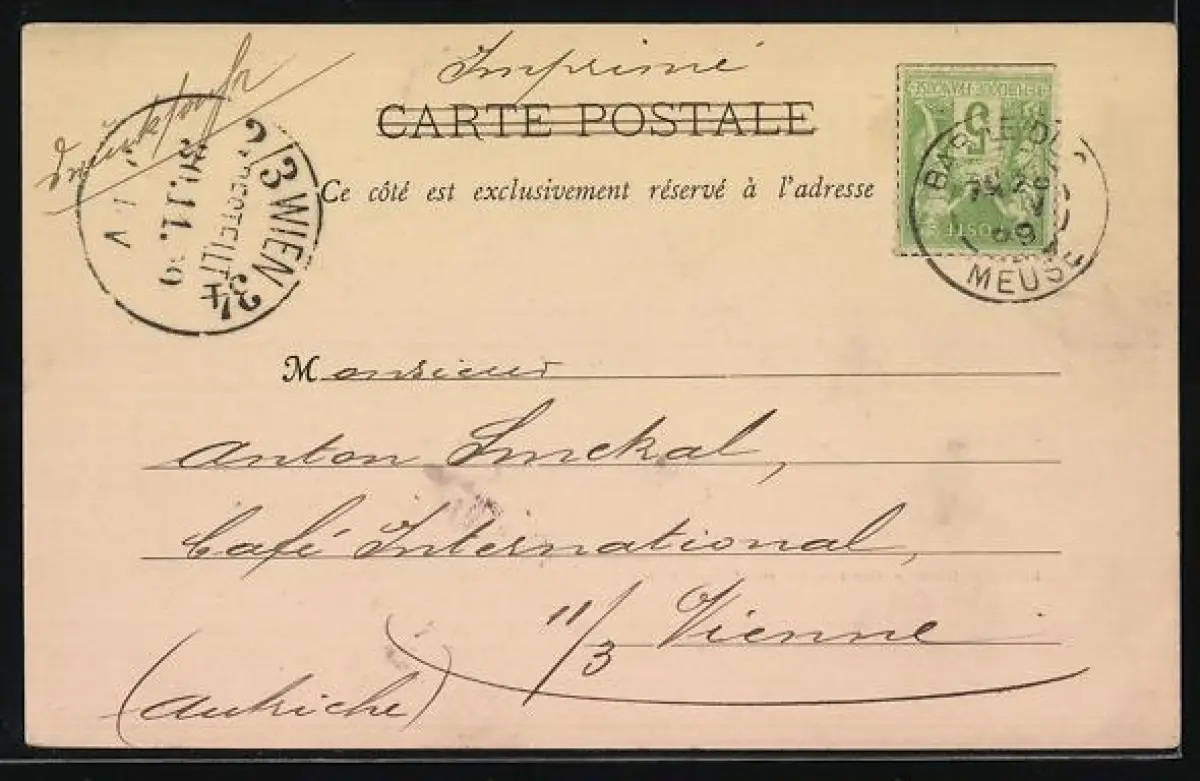 Imprimé
CARTE POSTALE
Ce côté est exclusivement réservé à l'adresse
2/3 WIEN 3/4
30.11.99
BAR-LE-DUC
99
MEUSE
REPUBLIQUE FRANCAISE
5
POSTE
Monsieur
Anton Smekal,
Café International,
II/3 Vienne
(Autriche)